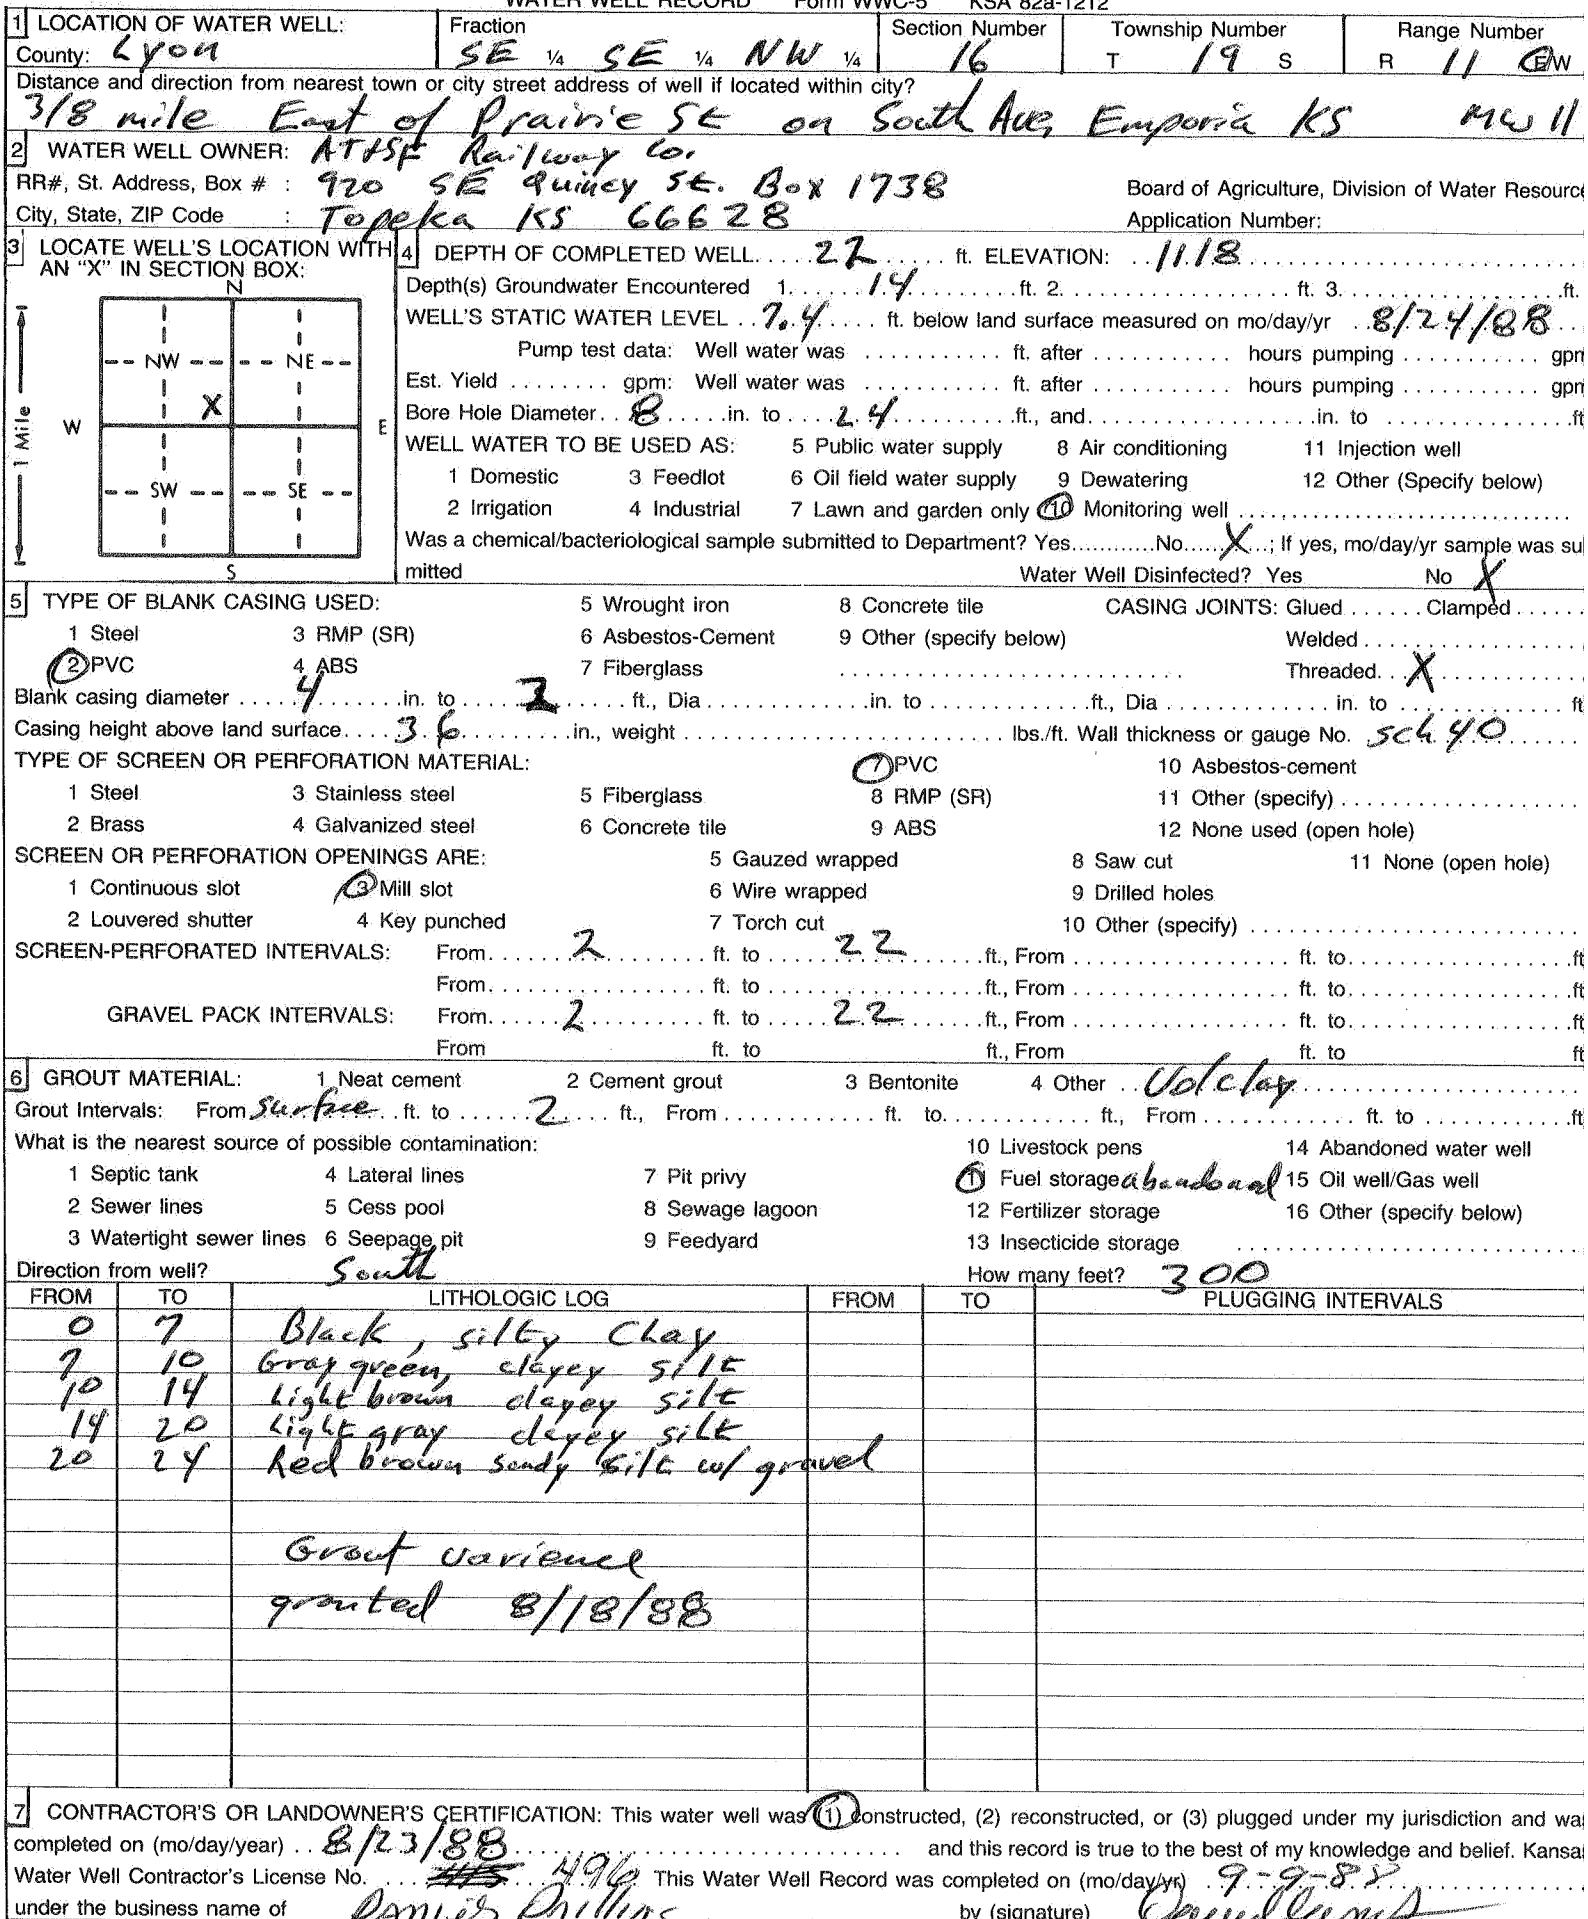 WATER WELL RECORD Form WWC-5 KSA 82a-1212
1 LOCATION OF WATER WELL: Fraction Section Number Township Number Range Number
County: Lyon SE 1/4 SE 1/4 NW 1/4 16 T 19 S R 11 E/W
Distance and direction from nearest town or city street address of well if located within city?
3/8 mile East of Prairie St on South Ave, Emporia KS MW 11
2 WATER WELL OWNER: AT&SF Railway Co.
RR#, St. Address, Box # : 920 SE Quincy St. Box 1738 Board of Agriculture, Division of Water Resource
City, State, ZIP Code : Topeka KS 66628 Application Number:
3 LOCATE WELL'S LOCATION WITH AN "X" IN SECTION BOX:
N
NW NE
X
W E
SW SE
S
1 Mile
4 DEPTH OF COMPLETED WELL. . . . 22 . . . . ft. ELEVATION: . . 1118
Depth(s) Groundwater Encountered 1. . . . 14 . . . . ft. 2. . . . . ft. 3. . . . . ft.
WELL'S STATIC WATER LEVEL . . 7.4 . . . . ft. below land surface measured on mo/day/yr . . 8/24/88
Pump test data: Well water was . . . . ft. after . . . . hours pumping . . . . gpm
Est. Yield . . . . gpm: Well water was . . . . ft. after . . . . hours pumping . . . . gpm
Bore Hole Diameter . . 8 . . . . in. to . . . . 24 . . . . ft., and . . . . in. to . . . . ft
WELL WATER TO BE USED AS: 5 Public water supply 8 Air conditioning 11 Injection well
1 Domestic 3 Feedlot 6 Oil field water supply 9 Dewatering 12 Other (Specify below)
2 Irrigation 4 Industrial 7 Lawn and garden only 10 Monitoring well . . . .
Was a chemical/bacteriological sample submitted to Department? Yes. . . .No. . . X . . .; If yes, mo/day/yr sample was su
mitted Water Well Disinfected? Yes No X
5 TYPE OF BLANK CASING USED: 5 Wrought iron 8 Concrete tile CASING JOINTS: Glued . . . . Clamped . . . .
1 Steel 3 RMP (SR) 6 Asbestos-Cement 9 Other (specify below) Welded . . . .
2 PVC 4 ABS 7 Fiberglass . . . . Threaded. . X . . . .
Blank casing diameter . . . . 4 . . . . in. to . . . . 2 . . . . ft., Dia . . . . in. to . . . . ft., Dia . . . . in. to . . . . ft
Casing height above land surface. . . . 36 . . . . in., weight . . . . lbs./ft. Wall thickness or gauge No. sch 40
TYPE OF SCREEN OR PERFORATION MATERIAL: 7 PVC 10 Asbestos-cement
1 Steel 3 Stainless steel 5 Fiberglass 8 RMP (SR) 11 Other (specify) . . . .
2 Brass 4 Galvanized steel 6 Concrete tile 9 ABS 12 None used (open hole)
SCREEN OR PERFORATION OPENINGS ARE: 5 Gauzed wrapped 8 Saw cut 11 None (open hole)
1 Continuous slot 3 Mill slot 6 Wire wrapped 9 Drilled holes
2 Louvered shutter 4 Key punched 7 Torch cut 10 Other (specify) . . . .
SCREEN-PERFORATED INTERVALS: From. . . . 2 . . . . ft. to . . . . 22 . . . . ft., From . . . . ft. to. . . . ft
From. . . . ft. to . . . . ft., From . . . . ft. to. . . . ft
GRAVEL PACK INTERVALS: From. . . . 2 . . . . ft. to . . . . 22 . . . . ft., From . . . . ft. to. . . . ft
From ft. to ft., From ft. to ft
6 GROUT MATERIAL: 1 Neat cement 2 Cement grout 3 Bentonite 4 Other . . Volclay . . . .
Grout Intervals: From surface . . ft. to . . . . 2 . . . . ft., From . . . . ft. to. . . . ft., From . . . . ft. to . . . . ft
What is the nearest source of possible contamination: 10 Livestock pens 14 Abandoned water well
1 Septic tank 4 Lateral lines 7 Pit privy 11 Fuel storage abandonal 15 Oil well/Gas well
2 Sewer lines 5 Cess pool 8 Sewage lagoon 12 Fertilizer storage 16 Other (specify below)
3 Watertight sewer lines 6 Seepage pit 9 Feedyard 13 Insecticide storage . . . .
Direction from well? South How many feet? 300
FROM TO LITHOLOGIC LOG FROM TO PLUGGING INTERVALS
0 7 Black, silty Clay
7 10 Gray green, clayey silt
10 14 Light brown clayey silt
14 20 Light gray clayey silt
20 24 Red brown sandy silt w/ gravel
Grout varience
granted 8/18/88
7 CONTRACTOR'S OR LANDOWNER'S CERTIFICATION: This water well was (1) constructed, (2) reconstructed, or (3) plugged under my jurisdiction and wa
completed on (mo/day/year) . . 8/23/88 . . . . and this record is true to the best of my knowledge and belief. Kansa
Water Well Contractor's License No. . . . . 496 This Water Well Record was completed on (mo/day/yr) . 9-9-88 . . . .
under the business name of Drilling by (signature)